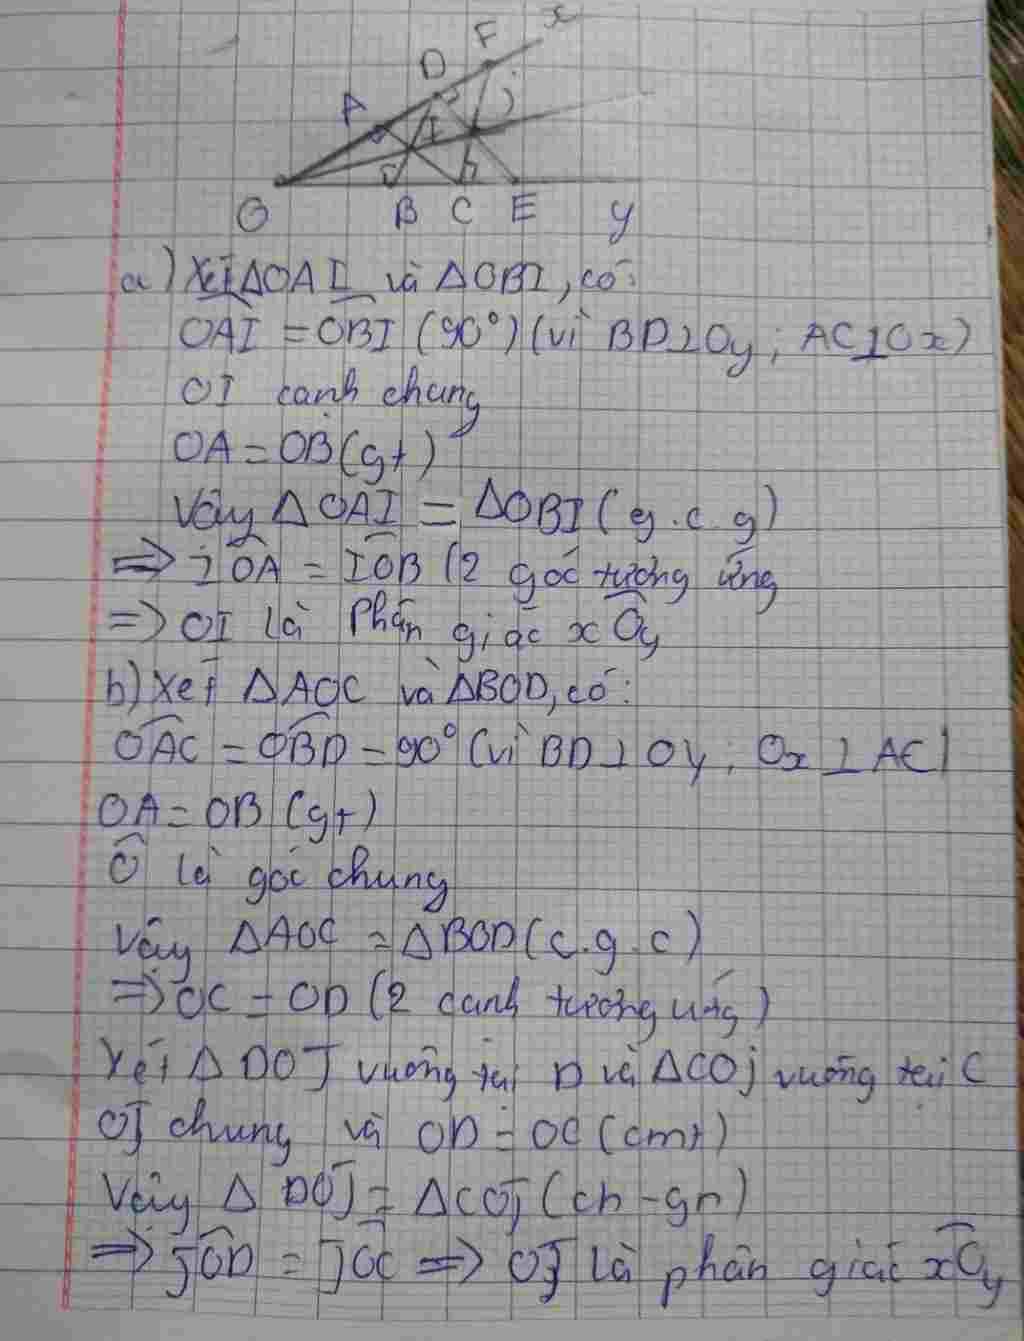 x
F
D
J
A
I
O B C E y
a) Xét ΔOAI và ΔOBI, có:
OAI = OBI (90°) (vì BD⊥Oy; AC⊥Ox)
OI cạnh chung
OA = OB (gt)
Vậy ΔOAI = ΔOBI (g.c.g)
⇒ IOA = IOB (2 góc tương ứng
⇒ OI là Phân giác xOy
b) Xét ΔAOC và ΔBOD, có:
OAC = OBD = 90° (vì BD⊥Oy; Ox⊥AC)
OA = OB (gt)
Ô là góc chung
Vậy ΔAOC = ΔBOD (c.g.c)
⇒ OC = OD (2 cạnh tương ứng)
Xét ΔDOJ vuông tại D và ΔCOJ vuông tại C
OJ chung và OD = OC (cmt)
Vậy ΔDOJ = ΔCOJ (ch-gn)
⇒ JOD = JOC ⇒ OJ là phân giác xOy